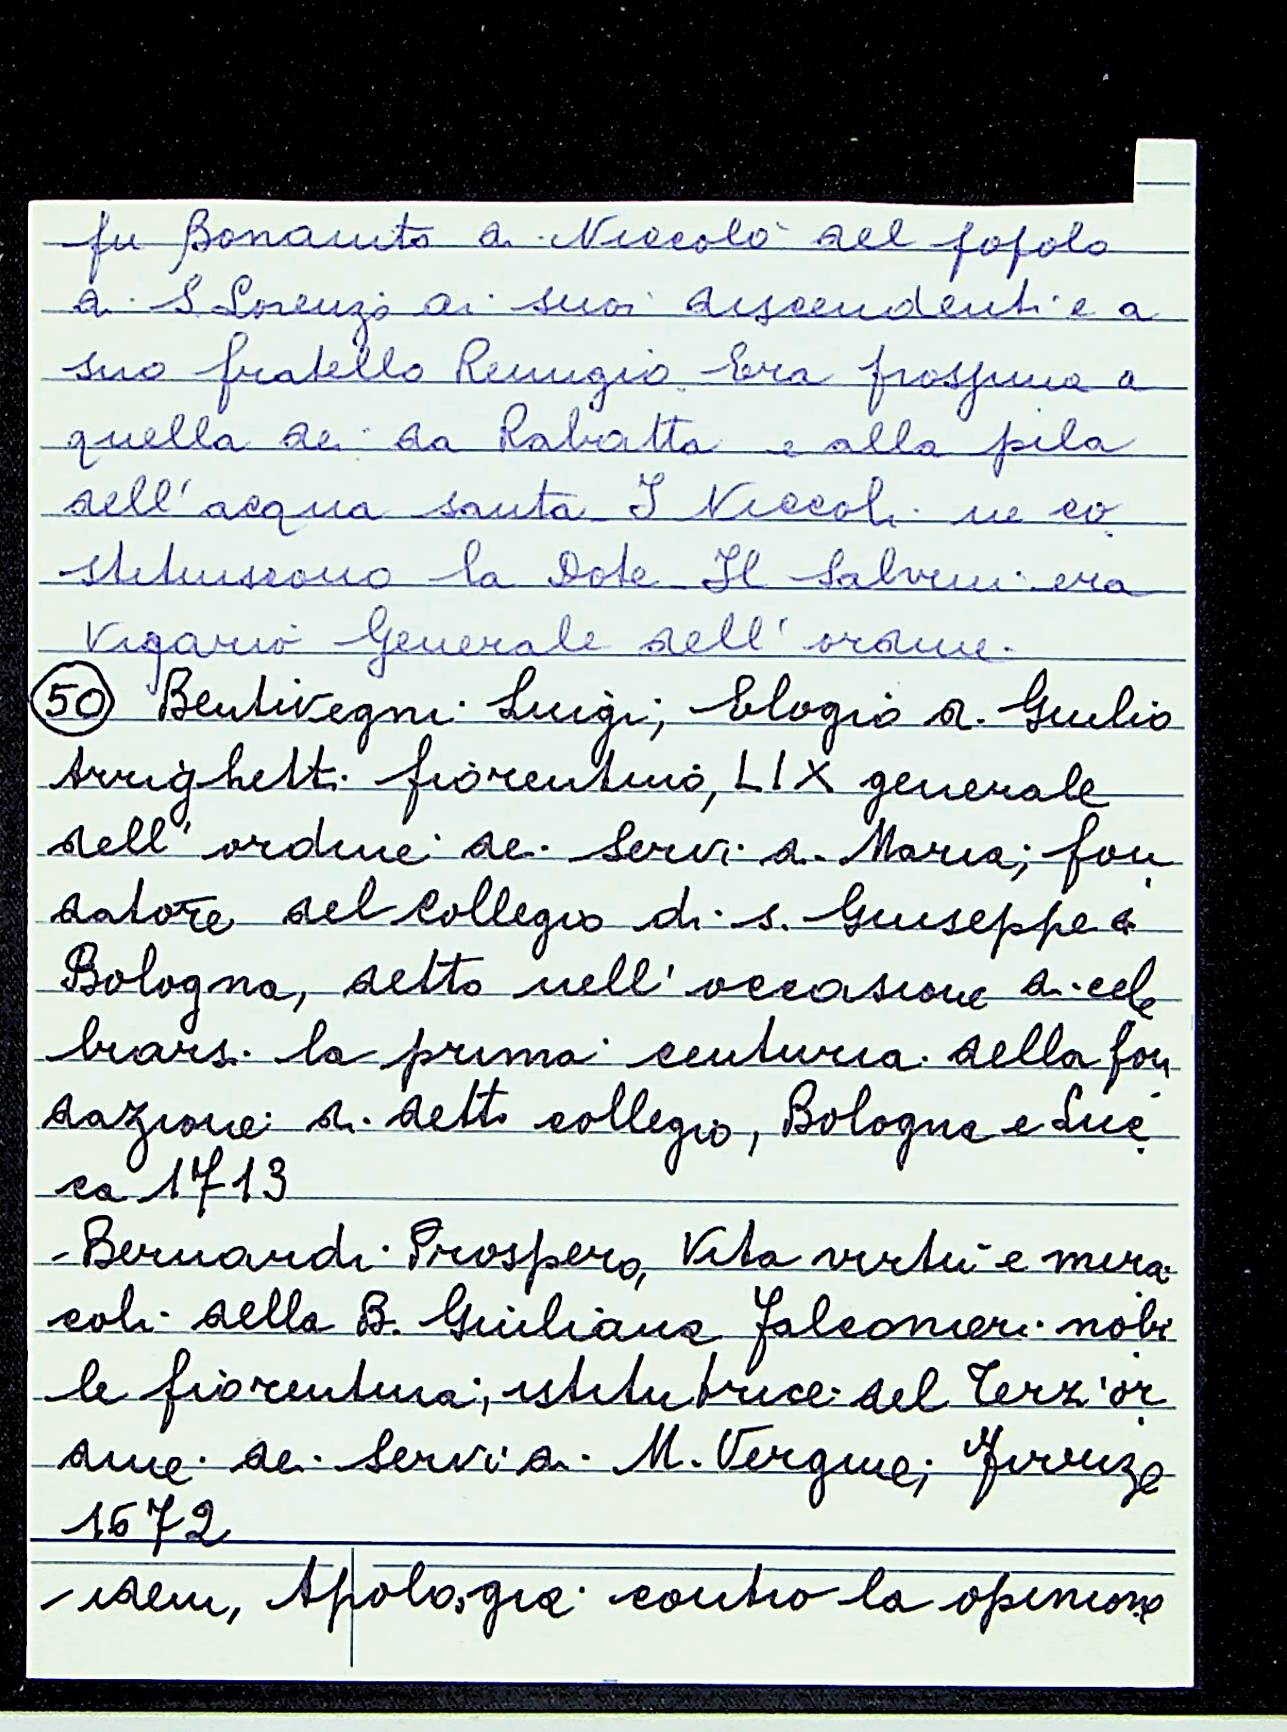 fu Bonaiuto di Niccolò del popolo
di S Lorenzo ai suoi discendenti e a
suo fratello Remigio Era prossima a
quella dei da Rabatta e alla pila
dell'acqua santa I Niccoli ne co
stituiscono la Dote Il Salvini era
Vigario Generale dell'ordine.
50 Bentivegni Luigi; Elogio di Giulio
Arrighetti fiorentino, LIX generale
dell'ordine dei Servi di Maria; fon
datore del Collegio di s. Giuseppe a
Bologna, detto nell'occasione di cele
brarsi la prima centuria della fon
dazione di detto collegio, Bologna e Luc
ca 1713
-Bernardi Prospero, Vita virtù e mira
coli della B. Giuliana Falconieri nobi
le fiorentina; istitutrice del Terz'or
dine dei Servi di M. Vergine; Firenze
1672
-idem, Apologia contro la opinione